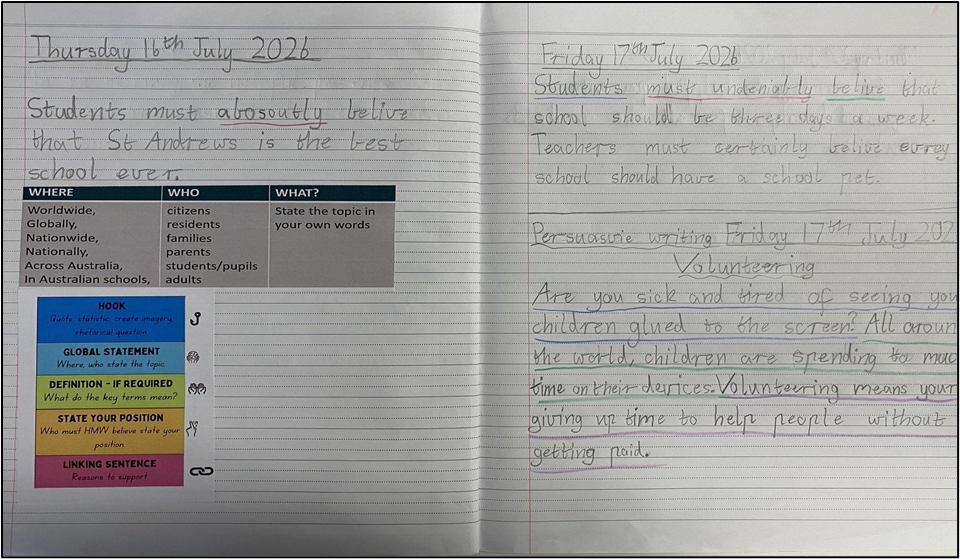 Thursday 16th July 2026
Students must abosoutly belive
that St Andrews is the best
school ever.
WHERE WHO WHAT?
Worldwide, citizens State the topic in
Globally, residents your own words
Nationwide, families
Nationally, parents
Across Australia, students/pupils
In Australian schools, adults
HOOK
Quote, statistic, create imagery,
rhetorical question
GLOBAL STATEMENT
Where, who state the topic
DEFINITION - IF REQUIRED
What do the key terms mean?
STATE YOUR POSITION
Who must HMW believe state your
position
LINKING SENTENCE
Reasons to support
Friday 17th July 2026
Students must undeniably belive that
school should be three days a week.
Teachers must certainly belive evrey
school should have a school pet.
Persuasvie writing Friday 17th July 202
Volunteering
Are you sick and tired of seeing you
children glued to the screen? All aroun
the world, children are spending to muc
time on their devices. Volunteering means your
giving up time to help people without
getting paid.